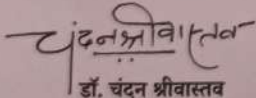 चंदन श्रीवास्तव
डॉ. चंदन श्रीवास्तव